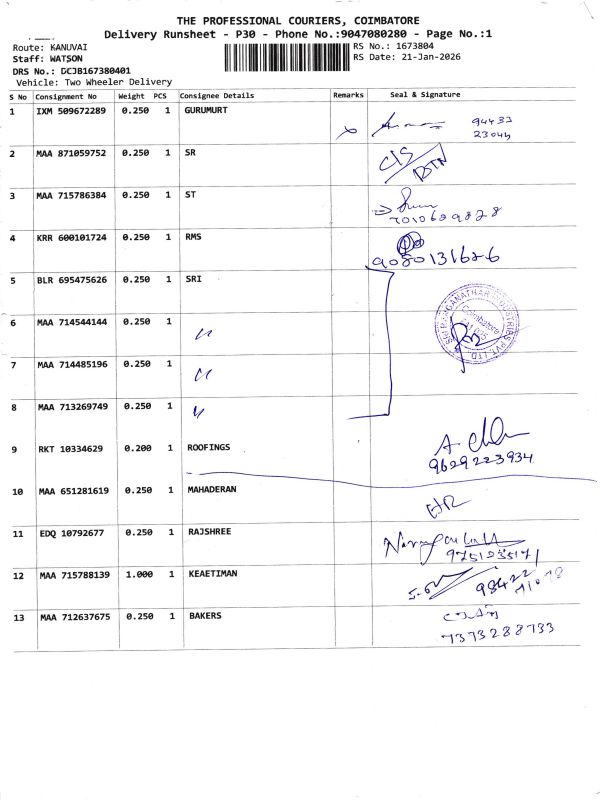 THE PROFESSIONAL COURIERS, COIMBATORE
Delivery Runsheet - P30 - Phone No.:9047080280 - Page No.:1
Route: KANUVAI
RS No.: 1673804
Staff: WATSON
RS Date: 21-Jan-2026
DRS No.: DCJB167380401
Vehicle: Two Wheeler Delivery
S No Consignment No Weight PCS Consignee Details Remarks Seal & Signature
1 IXM 509672289 0.250 1 GURUMURT
2 MAA 871059752 0.250 1 SR
3 MAA 715786384 0.250 1 ST
7010629828
4 KRR 600101724 0.250 1 RMS
9080131626
5 BLR 695475626 0.250 1 SRI
6 MAA 714544144 0.250 1 〃
7 MAA 714485196 0.250 1 〃
8 MAA 713269749 0.250 1 〃
9 RKT 10334629 0.200 1 ROOFINGS
9629223934
10 MAA 651281619 0.250 1 MAHADERAN
11 EDQ 10792677 0.250 1 RAJSHREE
12 MAA 715788139 1.000 1 KEAETIMAN
98422
13 MAA 712637675 0.250 1 BAKERS
7373288733